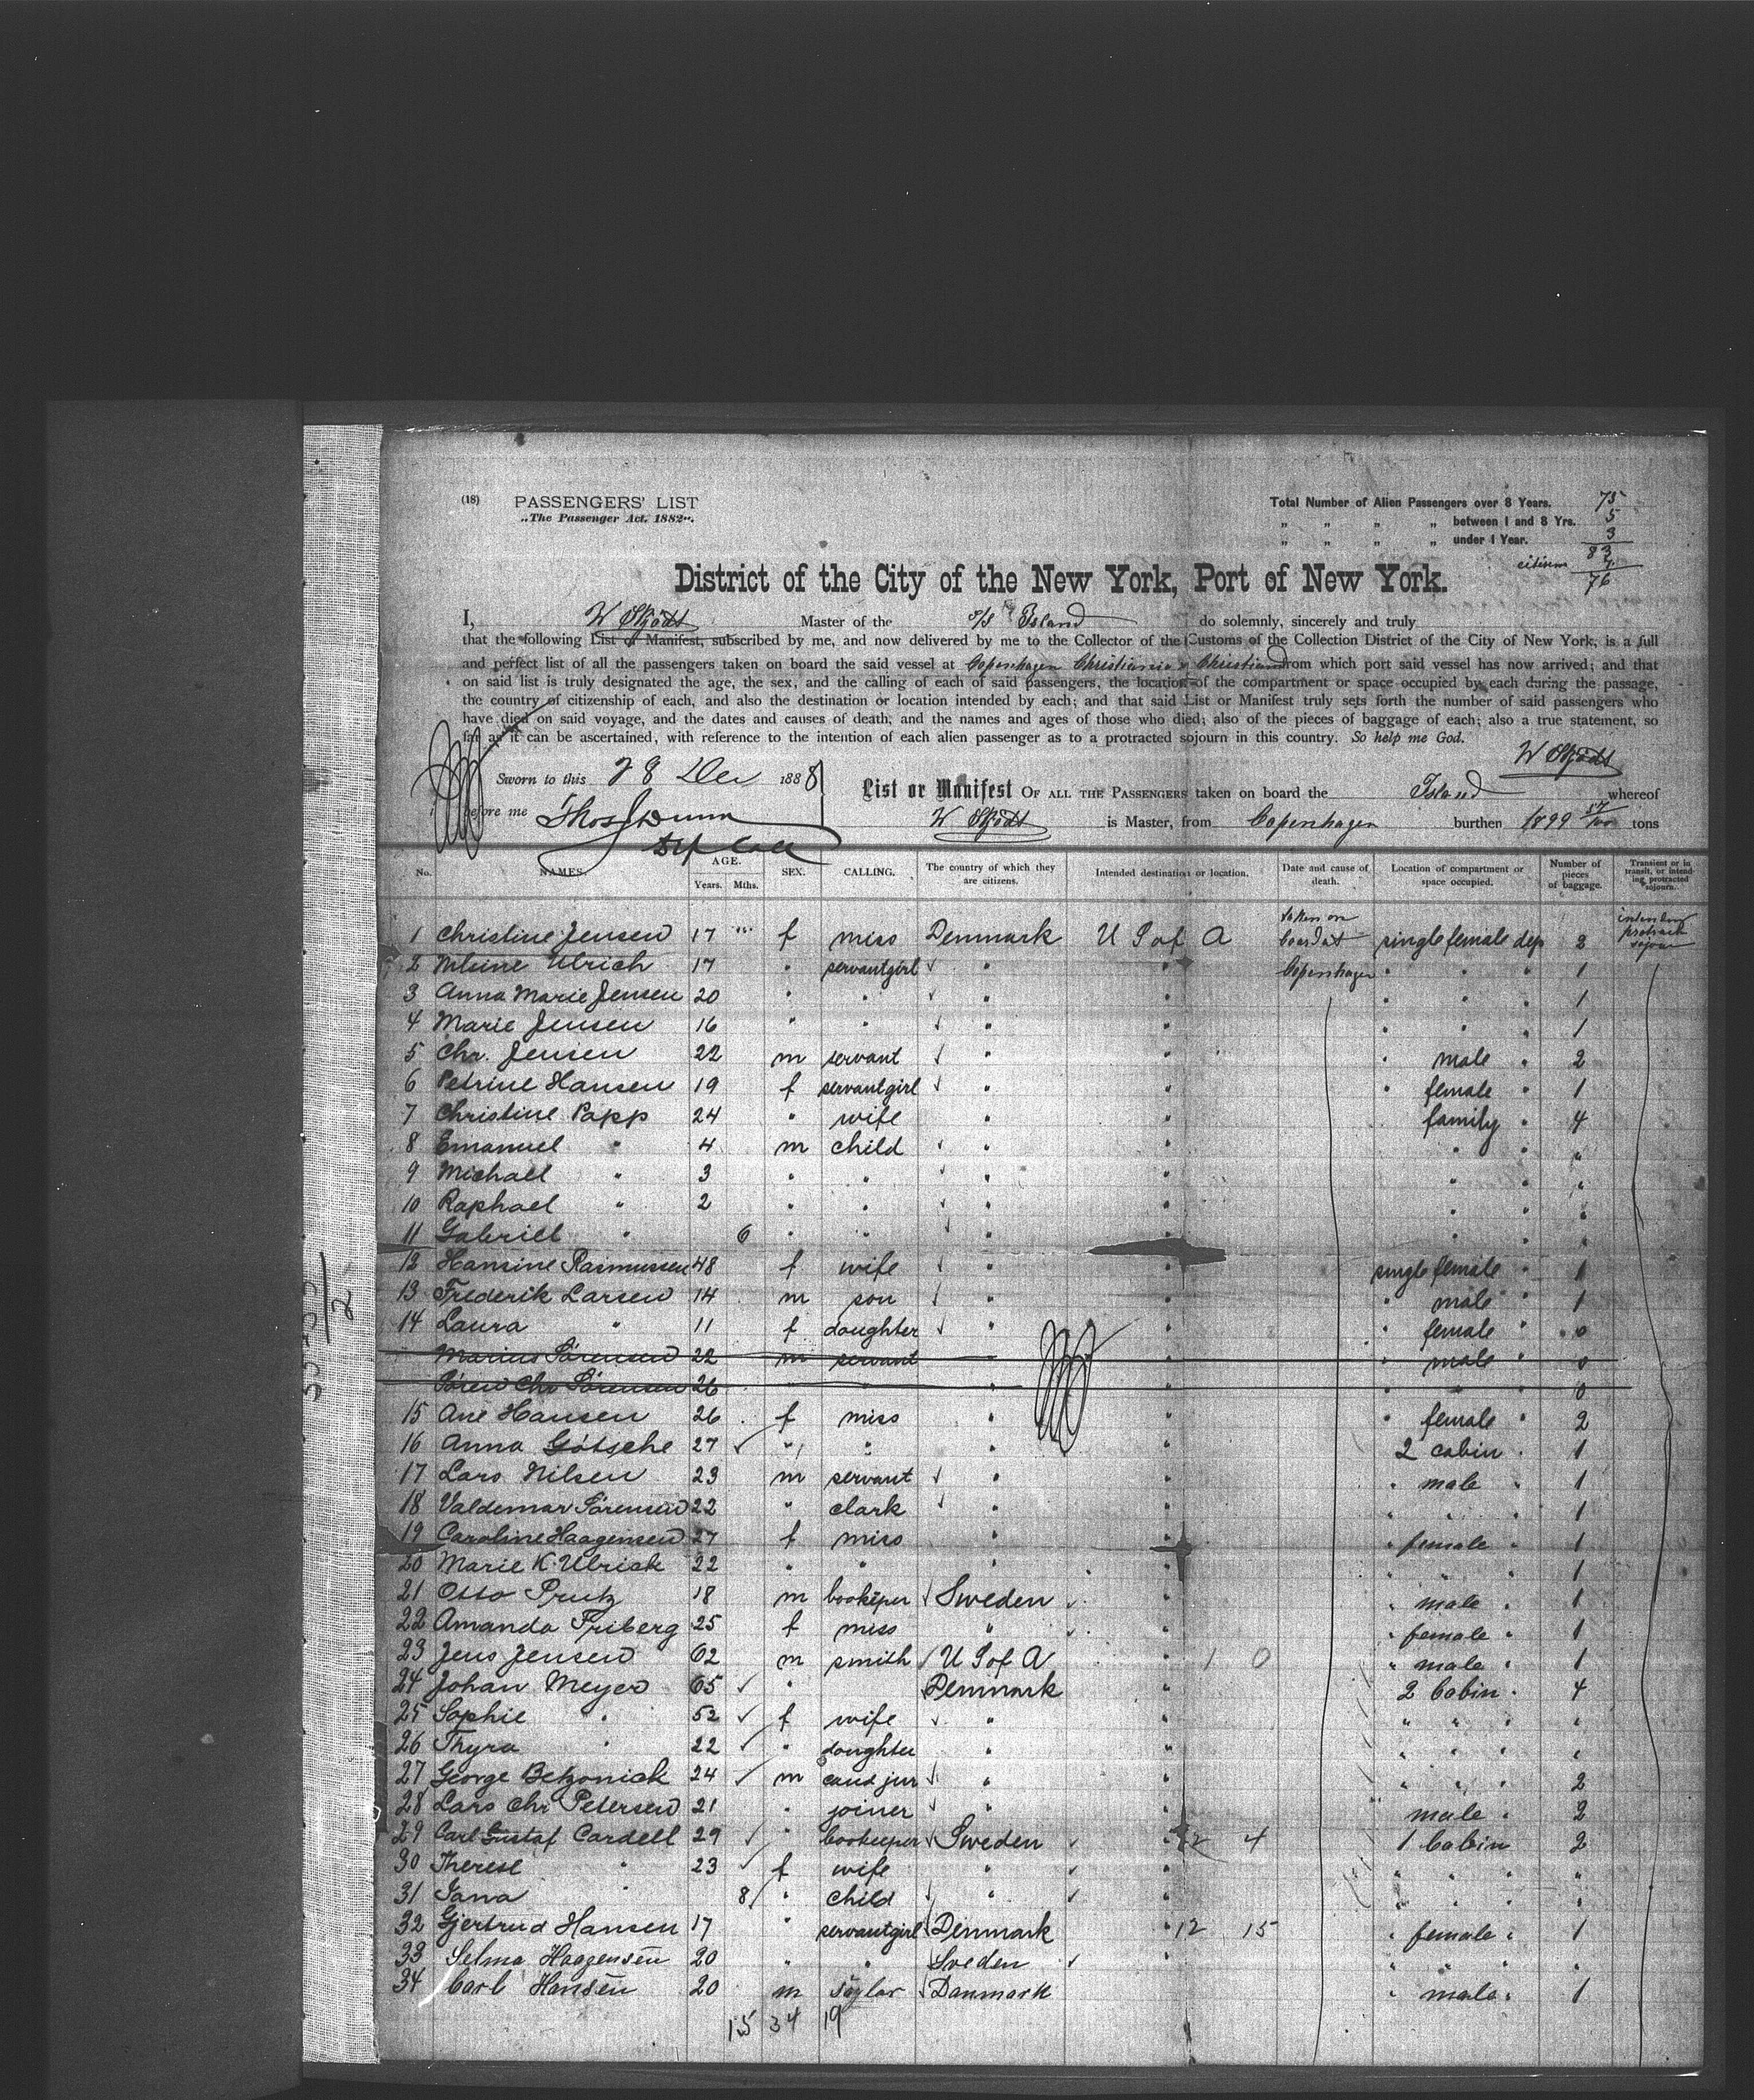 (18) PASSENGERS' LIST
„The Passenger Act, 1882“.
Total Number of Alien Passengers over 8 Years. 75
„ „ „ „ between 1 and 8 Yrs. 5
„ „ „ „ under 1 Year. 3
83
citizen 7
76
District of the City of the New York, Port of New York.
I, W Skjödt Master of the S/S Island do solemnly, sincerely and truly
that the following List or Manifest, subscribed by me, and now delivered by me to the Collector of the Customs of the Collection District of the City of New York, is a full
and perfect list of all the passengers taken on board the said vessel at Copenhagen Christiania & Christiansand from which port said vessel has now arrived; and that
on said list is truly designated the age, the sex, and the calling of each of said passengers, the location of the compartment or space occupied by each during the passage,
the country of citizenship of each, and also the destination or location intended by each; and that said List or Manifest truly sets forth the number of said passengers who
have died on said voyage, and the dates and causes of death, and the names and ages of those who died; also of the pieces of baggage of each; also a true statement, so
far as it can be ascertained, with reference to the intention of each alien passenger as to a protracted sojourn in this country. So help me God.
W Skjödt
Sworn to this 28 Dec 1888
before me Thos J Dunn
Dep Coll
List or Manifest OF ALL THE PASSENGERS taken on board the Island whereof
W Skjödt is Master, from Copenhagen burthen 1899 57/100 tons
No. NAMES. AGE. Years. Mths. SEX. CALLING. The country of which they are citizens. Intended destination or location. Date and cause of death. Location of compartment or space occupied. Number of pieces of baggage. Transient or in transit, or intending protracted sojourn.
1 Christine Jensen 17 " f miss Denmark U S of A taken on board at single female dep 2 intending protract sojour
2 Ulrich 17 " servantgirl " " Copenhagen " " " 1
3 Anna Marie Jensen 20 " " " " " " " 1
4 Marie Jensen 16 " " " " " " " 1
5 Chr. Jensen 22 m servant " " " male " 2
6 Petrine Hansen 19 f servantgirl " " " female " 1
7 Christine Papp 24 " wife " " family " 4
8 Emanuel " 4 m child " " " " "
9 Michael " 3 " " " " " " "
10 Raphael " 2 " " " " " " "
11 Gabriel " 6 " " " " " " "
12 Hansine Rasmussen 48 f wife " " single female " 1
13 Frederik Larsen 14 m son " " " male " 1
14 Laura " 11 f daughter " " " female " 0
Marius Sörensen 22 m servant " " " male " 0
Sören Chr Sörensen 26 " " " " " " " 0
15 Ane Hansen 26 f miss " " " female " 2
16 Anna Götsche 27 " " " " 2 cabin " 1
17 Lars Nilsen 23 m servant " " " male " 1
18 Valdemar Sörensen 22 " clark " " " " " 1
19 Caroline Haagensen 27 f miss " " " female " 1
20 Marie K. Ulrick 22 " " " " " " " 1
21 Otto Prutz 18 m bookeper Sweden " " male " 1
22 Amanda Friberg 25 f miss " " " female " 1
23 Jens Jensen 62 m smith U S of A " 1 0 " male " 1
24 Johan Meyer 65 " Denmark " 2 Cabin " 4
25 Sophie " 52 f wife " " " " " "
26 Thyra " 22 " daughter " " " " " "
27 George 24 m cand jur " " " " " 2
28 Lars Chr Petersen 21 " joiner " " male " 2
29 Carl Gustaf Cardell 29 " bookeeper Sweden " 12 4 1 Cabin 2
30 Therese " 23 f wife " " " " " "
31 " 8 " child " " " " " "
32 Gjertrud Hansen 17 " servantgirl Denmark " 12 15 " female " 1
33 Selma Haagensen 20 " " Sveden " " " " "
34 Carl Hansen 20 m Danmark " male " 1
15 34 19